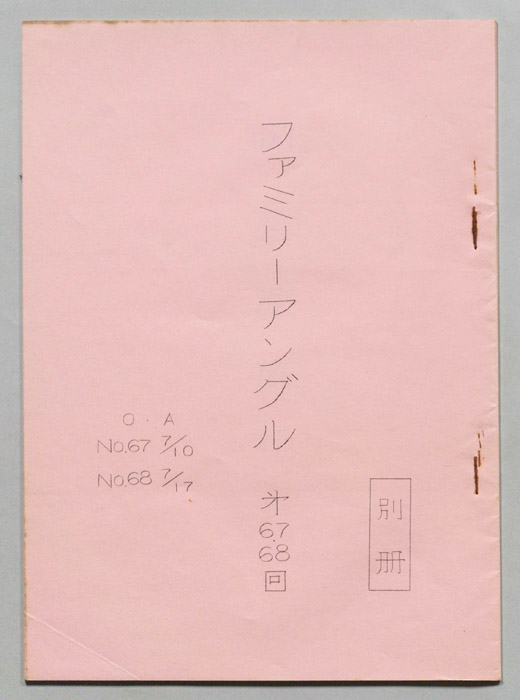 別冊
ファミリーアングル
㐧67.68回
O・A
No.67 7/10
No.68 7/17